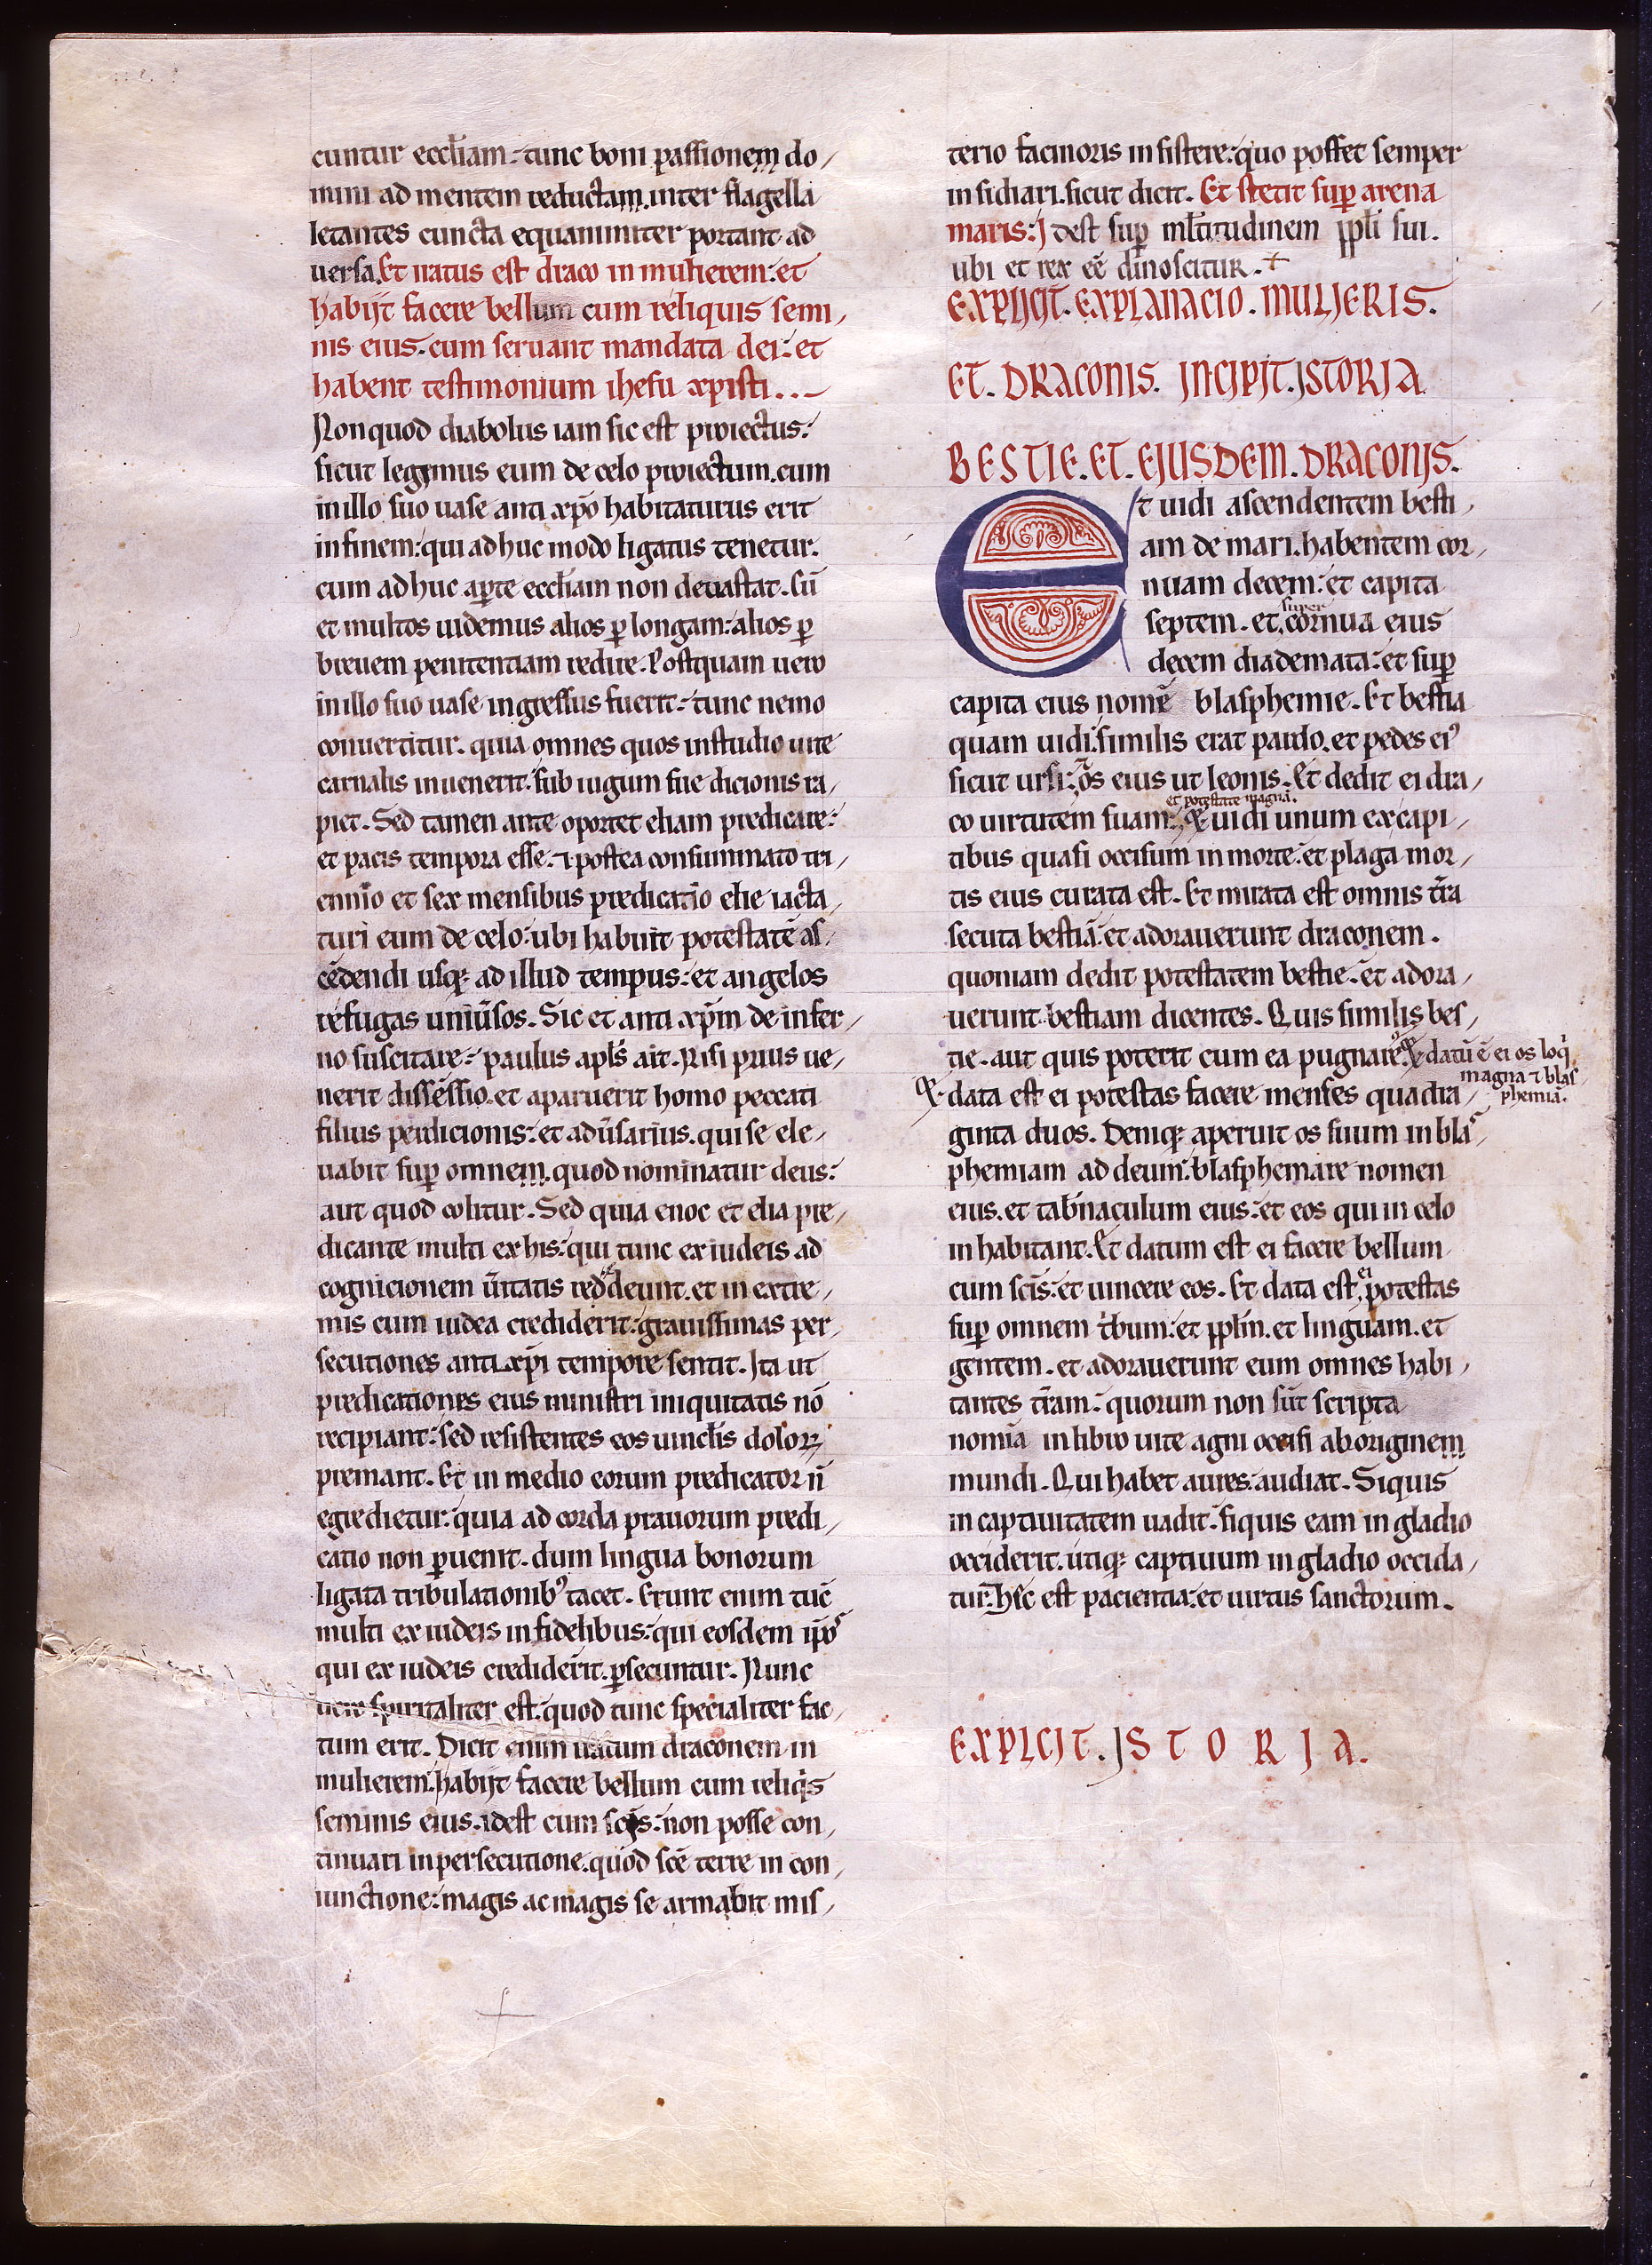 cuntur eccl̄iam: tunc boni passionem do/
mini ad mentem reductam. inter flagella
letantes cuncta equanimiter portant ad
uersa. Et iratus est draco in mulierem: et
habijt facere bellum cum reliquis semi/
nis eius. cum seruant mandata dei: et
habent testimonium ihesu xp̄isti...
Non quod diabolus iam sic est proiectus:
sicut legimus eum de celo proiectum. cum
in illo suo uase anti xp̄o habitaturus erit
in finem: qui ad huc modo ligatus tenetur.
cum ad huc aꝑte eccl̄iam non deuastat. Cū
et multos uidemus alios ꝑ longam: alios ꝑ
breuem penitentiam redire. Postquam uero
in illo suo uase ingressus fuerit: tunc nemo
conuertitur. quia omnes quos in studio uite
carnalis inuenerit: sub iugum sue dicionis ra/
piet. Sed tamen ante oportet eliam predicare:
et pacis tempora esse. ⁊ postea consummato tri/
ennio et sex mensibus predicatio elie iacta/
turi eum de celo: ubi habuit potestatē as/
cēdendi usqꝫ ad illud tempus: et angelos
refugas uniūsos. Sic et anti xp̄m de infer/
no suscitare: paulus apl̄s ait. Nisi prius ue/
nerit dissessio. et aparuerit homo peccati
filius perdicionis: et adūsarius. qui se ele/
uabit suꝑ omnem. quod nominatur deus:
aut quod colitur. Sed quia enoc et elia pre/
dicante multi ex his: qui tunc ex iudeis ad
cognicionem ūitatis reddeunt. et in extre/
mis cum iudea crediderit: grauissimas per/
secutiones anti xp̄i tempore sentit. Ita ut
predicationes eius ministri iniquitatis nō
recipiant: sed resistentes eos uincl̄is doloꝝ
premant. Et in medio eorum predicator n̄
egredietur: quia ad corda prauorum predi/
catio non ꝑuenit. dum lingua bonorum
ligata tribulationibꝰ tacet. Erunt enim tūc
multi ex iudeis infidelibus: qui eosdem ip̄os
qui ex iudeis crediderit. ꝑsecuntur. Nunc
uero spiritaliter est: quod tunc specialiter fac/
tum erit. Dicit enim iratum draconem in
mulierem: habijt facere bellum cum reliqis
seminis eius. idest cum sc̄is: non posse con/
tinuari in persecutione. quod sc̄e terre in con/
iunctione: magis ac magis se armabit mis/
terio facinoris in sistere: quo posset semper
in sidiari. sicut dicit. Et stetit suꝑ arena
maris: Idest suꝑ ml̄titudinem ppl̄i sui.
ubi et rex eē dinoscitur.
EXPLICIT. EXPLANACIO. MULIERIS.
ET. DRACONIS. INCIPIT. ISTORIA
BESTIE. ET. EIUSDEM. DRACONIS.
Et uidi ascendentem besti/
am de mari. habentem cor/
nuam decem: et capita
septem. et super cornua eius
decem diademata: et suꝑ
capita eius nomē blasphemie. Et bestia
quam uidi: similis erat pardo. et pedes eiꝰ
sicut ursi: ⁊ os eius ut leonis. Et dedit ei dra/
et potestatē magnā.
co uirtutem suam: & uidi unum ex capi/
tibus quasi occisum in morte: et plaga mor/
tis eius curata est. Et mirata est omnis t̄ra
secuta bestiā: et adorauerunt draconem.
quoniam dedit potestatem bestie: et adora/
uerunt bestiam dicentes. Quis similis bes/
tie. aut quis poterit cum ea pugnare: & datū ē ei os loq̄
magna ⁊ blas
phemia.
& data est ei potestas facere menses quadra/
ginta duos. Deniqꝫ aperuit os suum in blas/
phemiam ad deum: blasphemare nomen
eius. et tab̄naculum eius: et eos qui in celo
in habitant. Et datum est ei facere bellum
cum sc̄is: et uincere eos. Et data est ei potestas
suꝑ omnem t̄bum: et ppl̄m. et linguam. et
gentem. et adorauerunt eum omnes habi/
tantes t̄ram: quorum non sūt scripta
nomia in libro uite agni occisi ab originem
mundi. Qui habet aures: audiat. Siquis
in captiuitatem uadit: siquis eam in gladio
occiderit. utiqꝫ captiuum in gladio occida/
tur. hic est pacientia: et uirtus sanctorum.
EXPLCIT. ISTORIA.